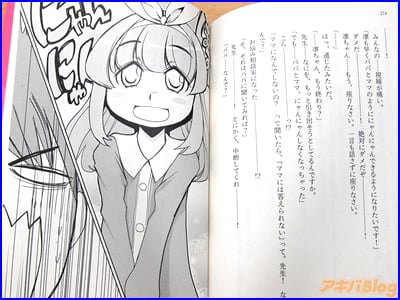 154
みんなの――視線が痛い。
「凛も早くパパとママのようににゃんにゃんできるようになりたいです！」
ダメだぞ――――絶対にダメだぞ――――。
「凛ちゃん――もう、座りなさい。一言も話さずに座りなさい。
はっ、通じたみたいだ。
――凛ちゃん、もう終わり？
先生――なにを、もっと引き出そうとしてるんですか。
「でも――最近パパとママ、にゃんにゃんしなくなっちゃった」
――――――！？
「ママになんでしないの？　って聞いたら、『ママには答えられない』って。先生！
――――――！？
お悩み相談室になった――――！？
「そ、それはパパに聞いてみれば？」
先生――――――とにかく、中断してくれ――！
「パパ――なんで？」
にゃんにゃん
アキバBlog